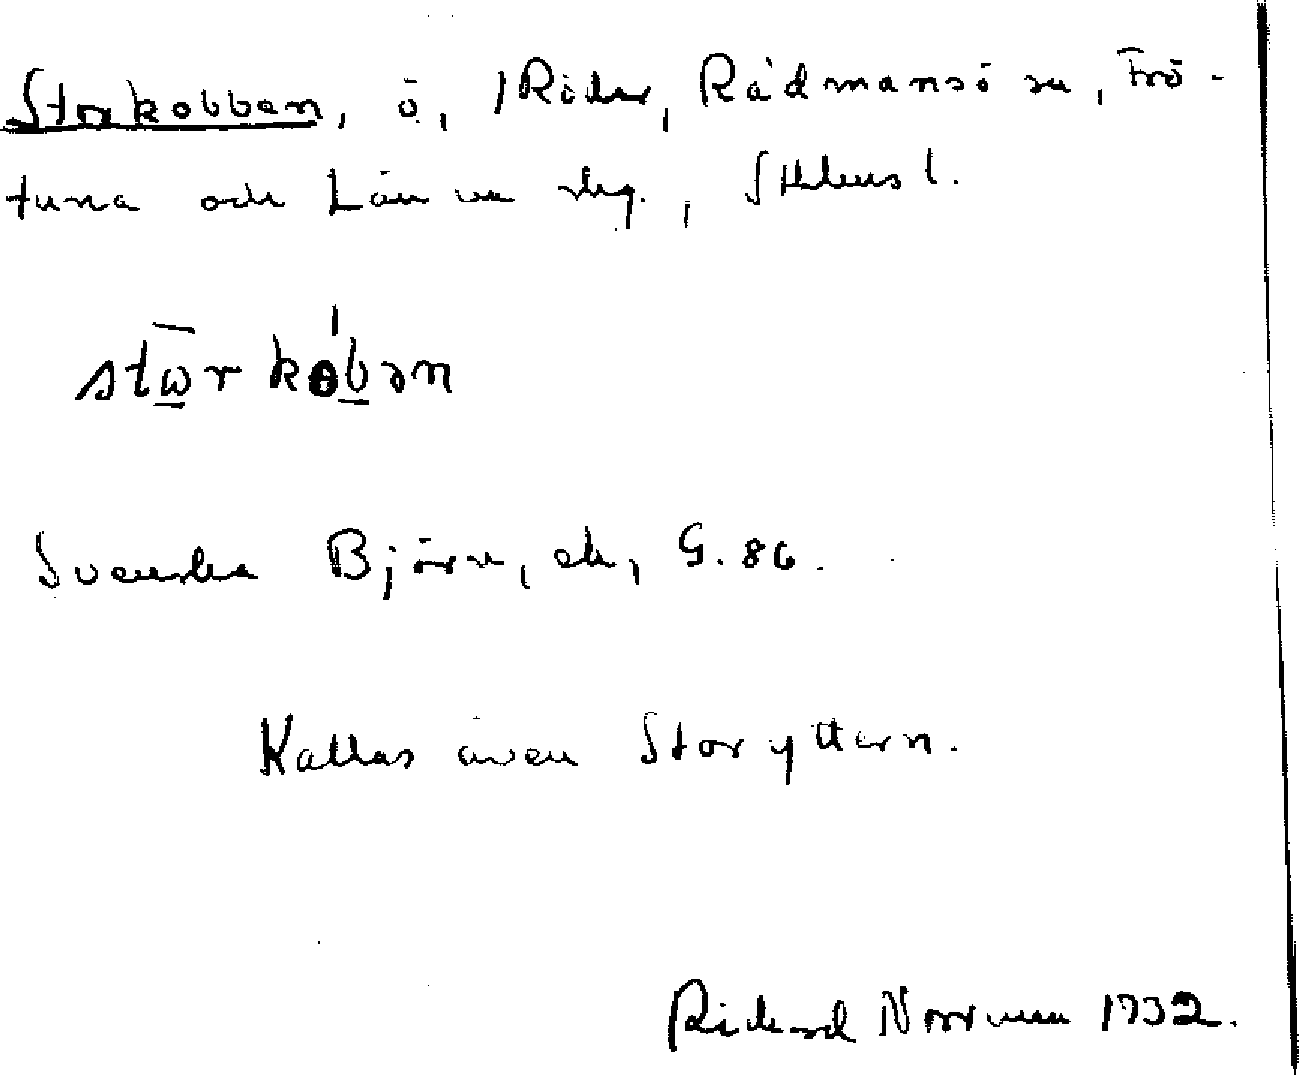 Storkobban, ö, Röder, Rådmansö sn, Frö-
tuna och Länna slg., Sthlms l.
stωrkobən
Svenska Björn, ek, G. 86.
Kallas även Storyttern.
Rickard Norrman 1932.